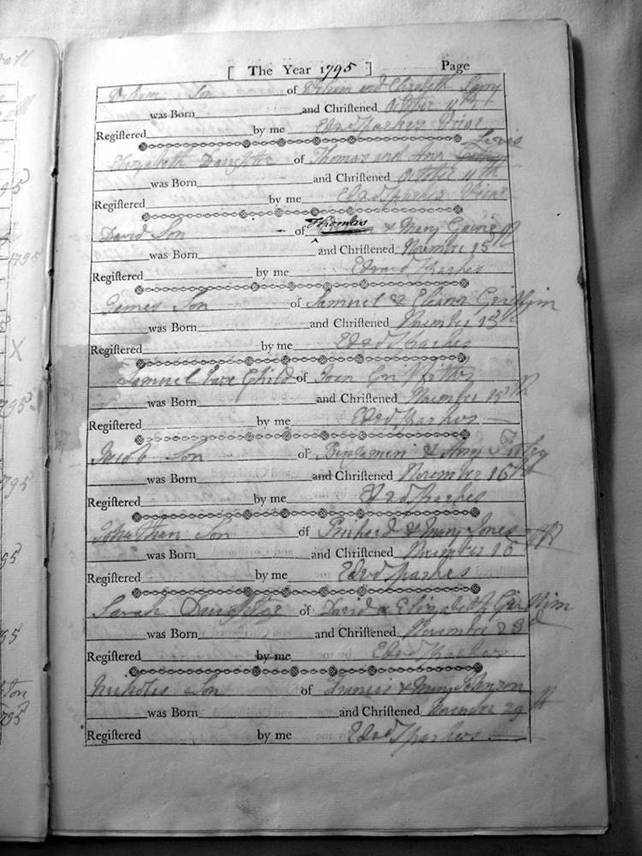 [ The Year 1795 ] Page
Son of and Elizabeth
was Born and Chriſtened October 11th
Regiſtered by me Edwd Sparkes Vicar
Lewis
Elizabeth Daughter of Thomas and Ann
was Born and Chriſtened October 11th
Regiſtered by me Edwd Sparkes Vicar
Thomas
David Son of & Mary
was Born and Chriſtened November 15
Regiſtered by me Edward Sparkes
James Son of Samuel & Elinor
was Born and Chriſtened November 15
Regiſtered by me Edwd Sparkes
Samuel Child of Joan Griffiths
was Born and Chriſtened November 15th
Regiſtered by me Edwd Sparkes
Jacob Son of Benjamin & Amy
was Born and Chriſtened November 16th
Regiſtered by me Edwd Sparkes
Johnathan Son of & Mary Jones
was Born and Chriſtened November 16
Regiſtered by me Edwd Sparkes
Sarah Daughter of David & Elizabeth
was Born and Chriſtened November 28
Regiſtered by me Edwd Sparkes
Nicholes Son of Francis & Mary Johnson
was Born and Chriſtened November 29th
Regiſtered by me Edwd Sparkes